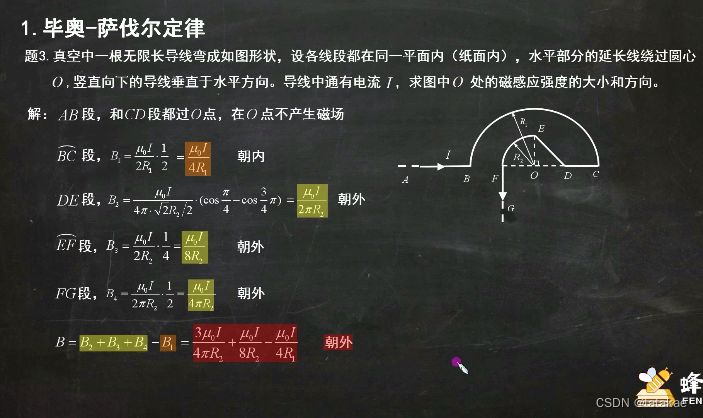 1.毕奥-萨伐尔定律
题3.真空中一根无限长导线弯成如图形状，设各线段都在同一平面内（纸面内），水平部分的延长线绕过圆心
O，竖直向下的导线垂直于水平方向。导线中通有电流 I，求图中O 处的磁感应强度的大小和方向。
解： AB 段，和CD段都过O点，在O点不产生磁场
B͡C 段，B₁ = μ₀I/2R₁ · 1/2 = μ₀I/4R₁ 朝内
DE 段，B₂ = μ₀I/(4π·√2R₂/2) · (cos π/4 − cos 3/4 π) = μ₀I/2πR₂ 朝外
E͡F 段，B₃ = μ₀I/2R₂ · 1/4 = μ₀I/8R₂ 朝外
FG段，B₄ = μ₀I/2πR₂ · 1/2 = μ₀I/4πR₂ 朝外
B = B₂ + B₃ + B₄ − B₁ = 3μ₀I/4πR₂ + μ₀I/8R₂ − μ₀I/4R₁ 朝外
R₁
E
I
R₂
A
B
F
O
D
C
G
蜂
FEN